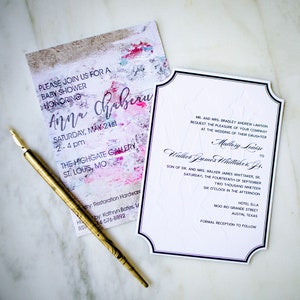 PLEASE JOIN US FOR A
BABY SHOWER
HONORING
Anna Chabeau
SATURDAY, MAY 21ST
2 - 4 PM
THE HIGHGATE GALLERY
ST. LOUIS, MO
Restoration Hardware
Kathryn Bates
MR. AND MRS. BRADLEY ANDREW LAWSON
REQUEST THE PLEASURE OF YOUR COMPANY
AT THE WEDDING OF THEIR DAUGHTER
SON OF MR. AND MRS. WALKER JAMES WHITTAKER, SR.
SATURDAY, THE FOURTEENTH OF SEPTEMBER
TWO THOUSAND NINETEEN
SIX O'CLOCK IN THE AFTERNOON
HOTEL ELLA
1900 RIO GRANDE STREET
AUSTIN, TEXAS
FORMAL RECEPTION TO FOLLOW